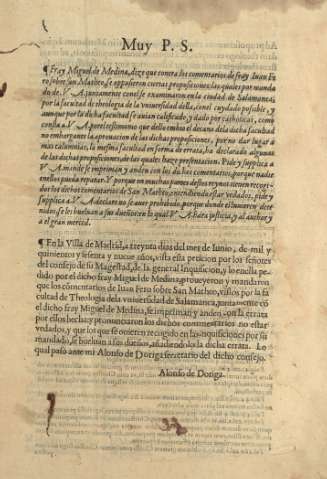 Muy P. S.
¶ Fray Miguel de Medina, dize que contra los comentarios de fray Iuan Fe
ro sobre san Matheo, se opposieron ciertas proposiciones, las quales por manda
do de V. A. juntamente con el se examinaron en la ciudad de Salamanca,
por la facultad de theologia de la vniuersidad della, con el cuydado possible, y
aunque por la dicha facultad se auian calificado, y dado por catholicas, como
consta a V. A. por el testimonio que dello embio el decano dela dicha facultad
no embargante la aprouacion de las dichas proposiciones, por no dar lugar a
mas calumnias, la mesma facultad en forma de errata, ha declarado algunas
de las dichas proposiciones, de las quales haze presentacion. Pide y supplica a
V. A. mande se impriman y anden con los dichos comentarios, porque nadie
en ellos pueda reparar. Y porque en muchas partes destos reynos tienen recogi-
dos los dichos comentarios de San Matheo, entendiendo estar vedados, pide y
supplica a V. A. declare no se auer prohibido, porque donde estuuieren dete
nidos, se les bueluan a sus dueños en lo qual V. A. hara justicia, y al author y
a el gran merced.
¶ En la Villa de Madrid, a treynta dias del mes de Iunio, de mil y
quinientos y sesenta y nueue años, vista esta peticion por los señores
del consejo de su Magestad, de la general Inquisicion, y lo enella pe-
dido por el dicho fray Miguel de Medina, proueyeron y mandaron
que los comentarios de Iuan Fero sobre San Matheo, vistos por la fa
cultad de Theologia dela vniuersidad de Salamanca, juntamente cō
el dicho fray Miguel de Medina, se impriman y anden con la errata
por ellos hecha: y pronunciaron los dichos commentarios no estar
vedados, y que los que se ouieren recogido en las inquisiciones por su
mandado, se bueluan a sus dueños, añadiendolo la dicha errata. Lo
qual passo ante mi Alonso de Doriga secretario del dicho consejo.
Alonso de Doriga.